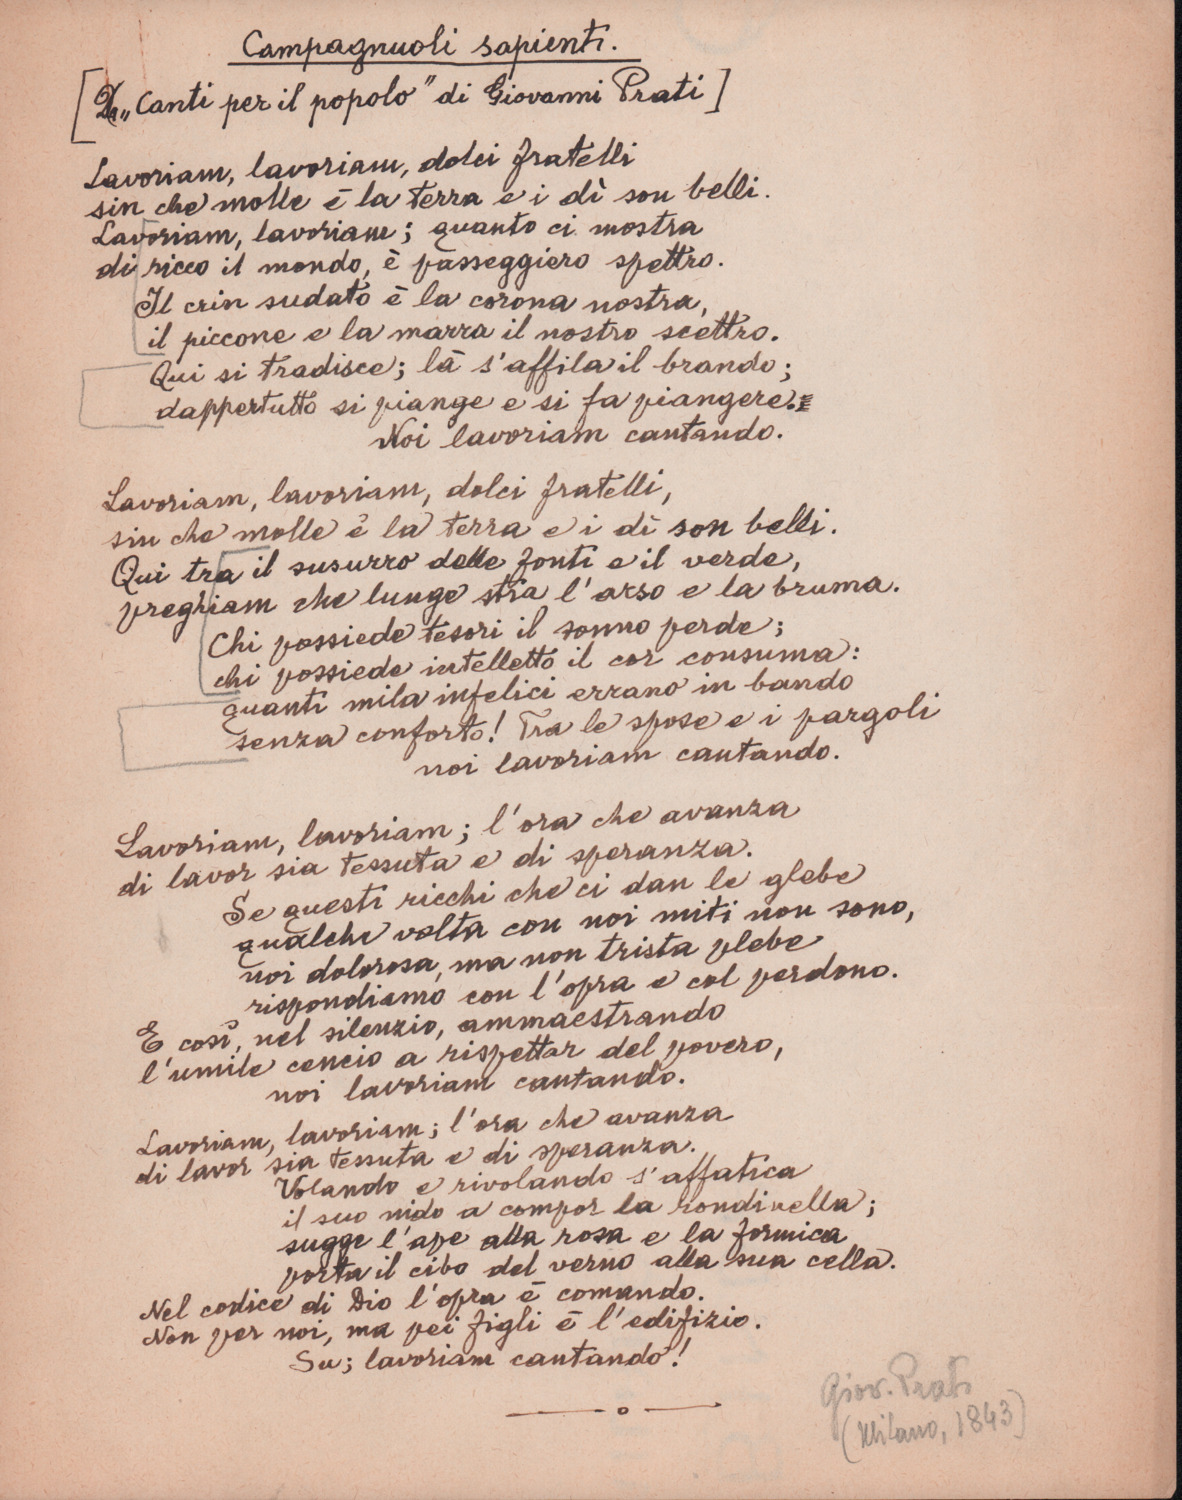 Campagnuoli sapienti.
[Da „Canti per il popolo" di Giovanni Prati]
Lavoriam, lavoriam, dolci fratelli
sin che molle è la terra e i dì son belli.
Lavoriam, lavoriam; quanto ci mostra
di ricco il mondo, è passeggiero spettro.
Il crin sudato è la corona nostra,
il piccone e la marra il nostro scettro.
Qui si tradisce; là s'affila il brando;
dappertutto si piange e si fa piangere.
Noi lavoriam cantando.
Lavoriam, lavoriam, dolci fratelli,
sin che molle è la terra e i dì son belli.
Qui tra il susurro delle fonti e il verde,
preghiam che lunge stia l'arso e la bruma.
Chi possiede tesori il sonno perde;
chi possiede intelletto il cor consuma:
quanti mila infelici errano in bando
senza conforto! Tra le spose e i pargoli
noi lavoriam cantando.
Lavoriam, lavoriam; l'ora che avanza
di lavor sia tessuta e di speranza.
Se questi ricchi che ci dan le glebe
qualche volta con noi miti non sono,
noi dolorosa, ma non trista plebe
rispondiamo con l'opra e col perdono.
E così, nel silenzio, ammaestrando
l'umile cencio a rispettar del povero,
noi lavoriam cantando.
Lavoriam, lavoriam; l'ora che avanza
di lavor sia tessuta e di speranza.
Volando e rivolando s'affatica
il suo nido a compor la rondinella;
sugge l'ape alla rosa e la formica
porta il cibo del verno alla sua cella.
Nel codice di Dio l'opra è comando.
Non per noi, ma pei figli è l'edifizio.
Su; lavoriam cantando!
Giov. Prati
(Milano, 1843)